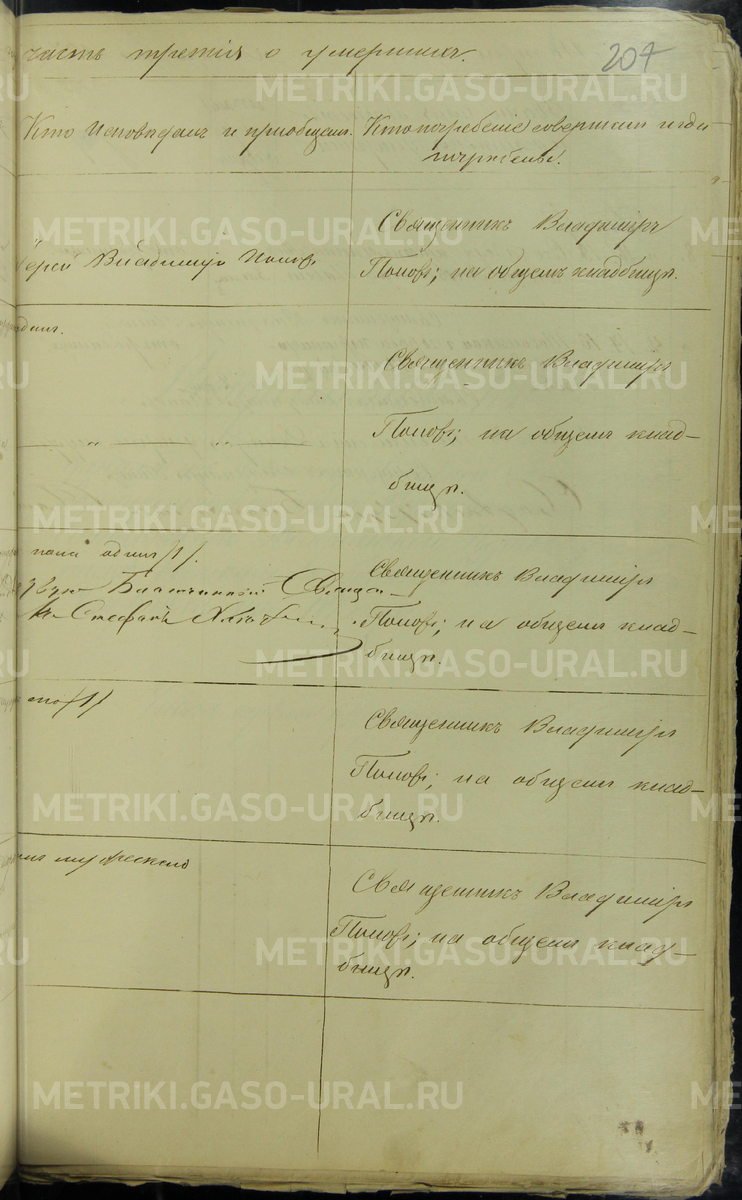 часть третія о умершихъ.
207
Кто исповѣдалъ и пріобщалъ.
Кто погребеніе совершалъ и гдѣ
погребены.
Іерей Владиміръ Поповъ
Священникъ Владиміръ
Поповъ; на общемъ кладбищѣ.
Священникъ Владиміръ
Поповъ; на общемъ клад-
бищѣ.
пола одинъ /1/.
Благочинный Священ-
Стефанъ
Священникъ Владиміръ
Поповъ; на общемъ клад-
бищѣ.
/1/
Священникъ Владиміръ
Поповъ; на общемъ клад-
бищѣ.
мужескаго
Священникъ Владиміръ
Поповъ; на общемъ клад-
бищѣ.
METRIKI.GASO-URAL.RU